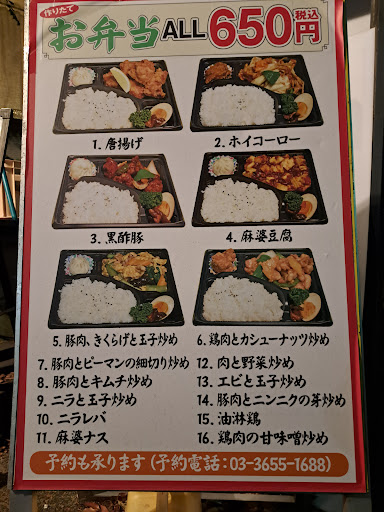 作りたて
お弁当 ALL 650円 税込
1. 唐揚げ
2. ホイコーロー
3. 黒酢豚
4. 麻婆豆腐
5. 豚肉、きくらげと玉子炒め
6. 鶏肉とカシューナッツ炒め
7. 豚肉とピーマンの細切り炒め
8. 豚肉とキムチ炒め
9. ニラと玉子炒め
10. ニラレバ
11. 麻婆ナス
12. 肉と野菜炒め
13. エビと玉子炒め
14. 豚肉とニンニクの芽炒め
15. 油淋鶏
16. 鶏肉の甘味噌炒め
予約も承ります (予約電話:03-3655-1688)